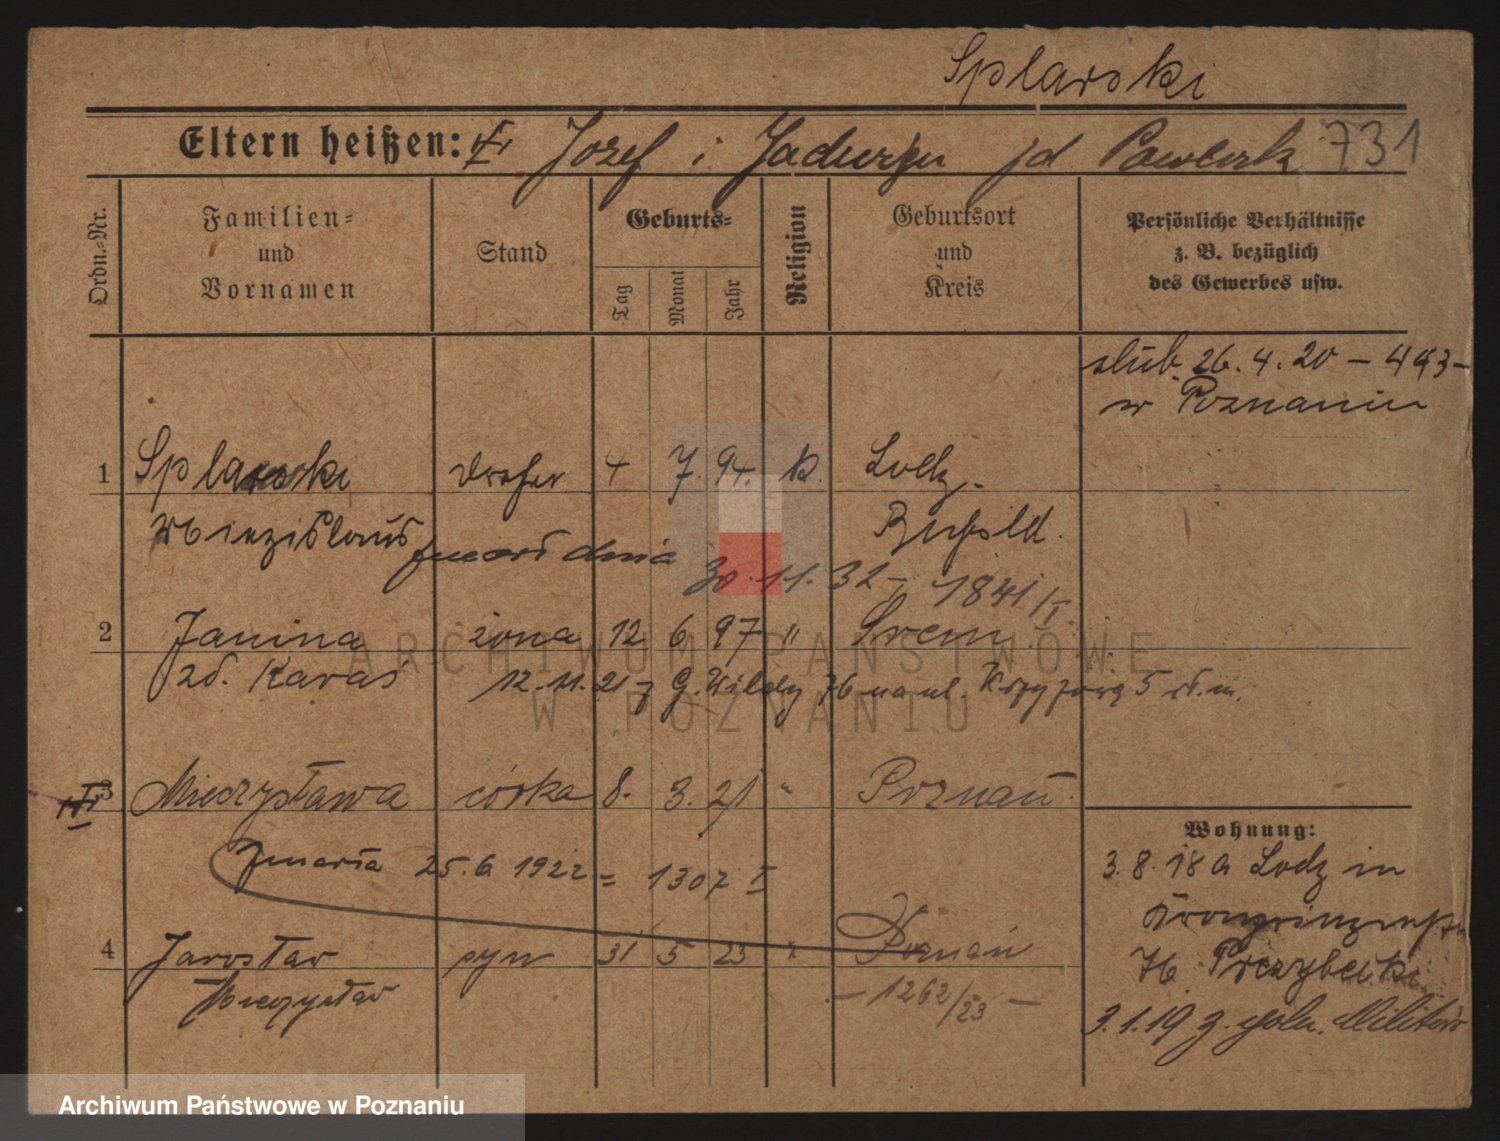 Splarski
Eltern heißen: Jozef i Jadwiga zd Pawlak 731
Ordn.-Nr.
Familien- und Vornamen
Stand
Geburts-
Tag
Monat
Jahr
Religion
Geburtsort und Kreis
Persönliche Verhältnisse z. B. bezüglich des Gewerbes usw.
ślub 26.4.20 – 443 –
w Poznaniu
1 Splarski Dreher 4 7. 94. K. Lodz.
Miezislaus
zmarł dnia 30.11.32 – 1841/I
2 Janina żona 12 6 97 " Śrem
zd. Karaś
12.11.21 z G. Wildy 76 na ul. 5 
3 Mieczysława córka 8. 3. 21 " Poznań.
Wohnung:
zmarła 25.6 1922 = 1307 I
3.8.18 a Lodz in
4 Jarosław syn 31 5 23 " Poznań
Mieczysław
– 1262/23 –
Przybecki
3.1.19 z. Militär
ARCHIWUM PAŃSTWOWE
W POZNANIU
Archiwum Państwowe w Poznaniu